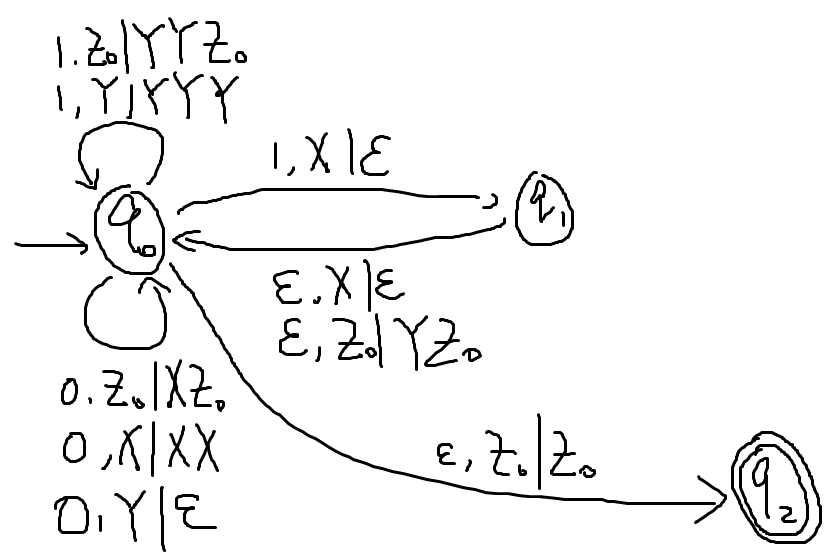 1.Z₀|YYZ₀
1,Y|YYY
1,X|ε
q₀
q₁
ε.X|ε
ε,Z₀|YZ₀
0.Z₀|XZ₀
0,X|XX
0,Y|ε
ε,Z₀|Z₀
q₂